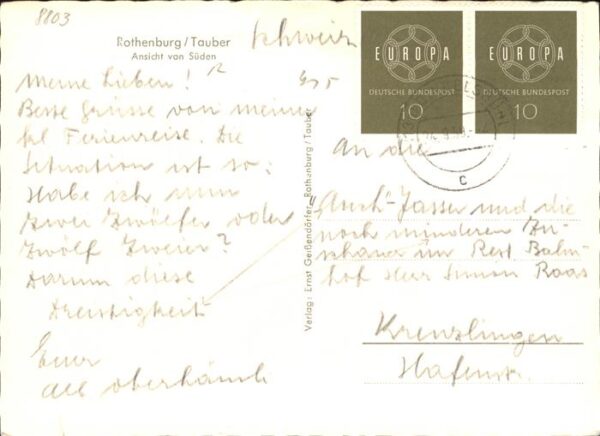 8803
Rothenburg/Tauber
Ansicht von Süden
Schweiz
Meine Lieben!
Beste Grüsse von meiner
kl Ferienreise. Die
Situation ist so:
Habe ich nun
zwei Zwölfer oder
Zwölf Zweier?
Darum diese
Dreistigkeit
Euer
Verlag: Ernst Geißendörfer, Rothenburg/Tauber
EUROPA
DEUTSCHE BUNDESPOST
10
EUROPA
DEUTSCHE BUNDESPOST
10
c
An die
Jasser und die
noch minderen Zu-
schauer im Rest. Bahn-
hof Herr Simon Roos
Kreuzlingen
Hafenstr.